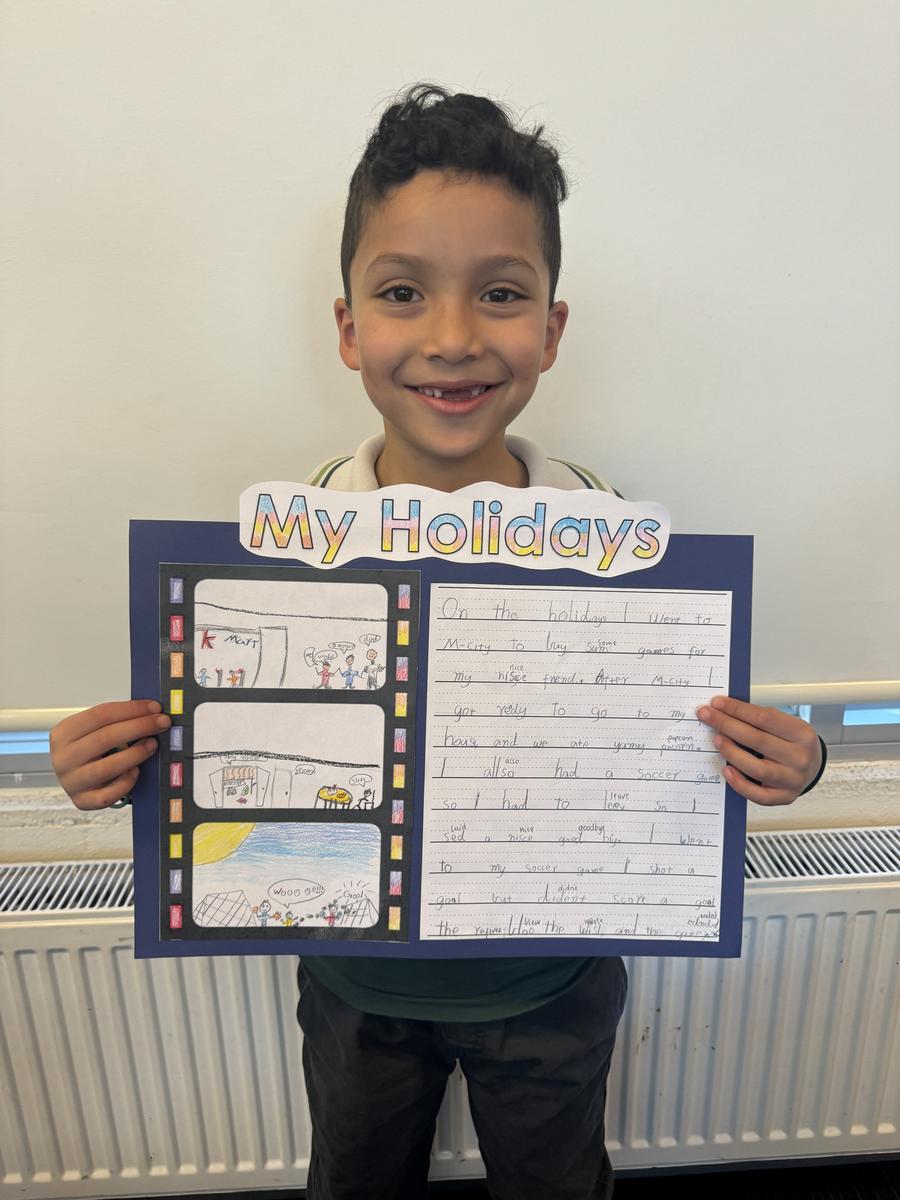 My Holidays
K mart
Wooo ooo!!
Goal
On the holidays I went to
some
M-city to buy sum games for
nice
my nisce friend. After M-city I
got redy to go to my
popcorn
house and we ate yumy pocorn.
also
I allso had a soccer game
leave
so I had to leev so I
said nice goodbye
sed a nisce good biy. I went
to my soccer game I shot a
didn't
goal but I dident score a goal
blew ended
the the and the